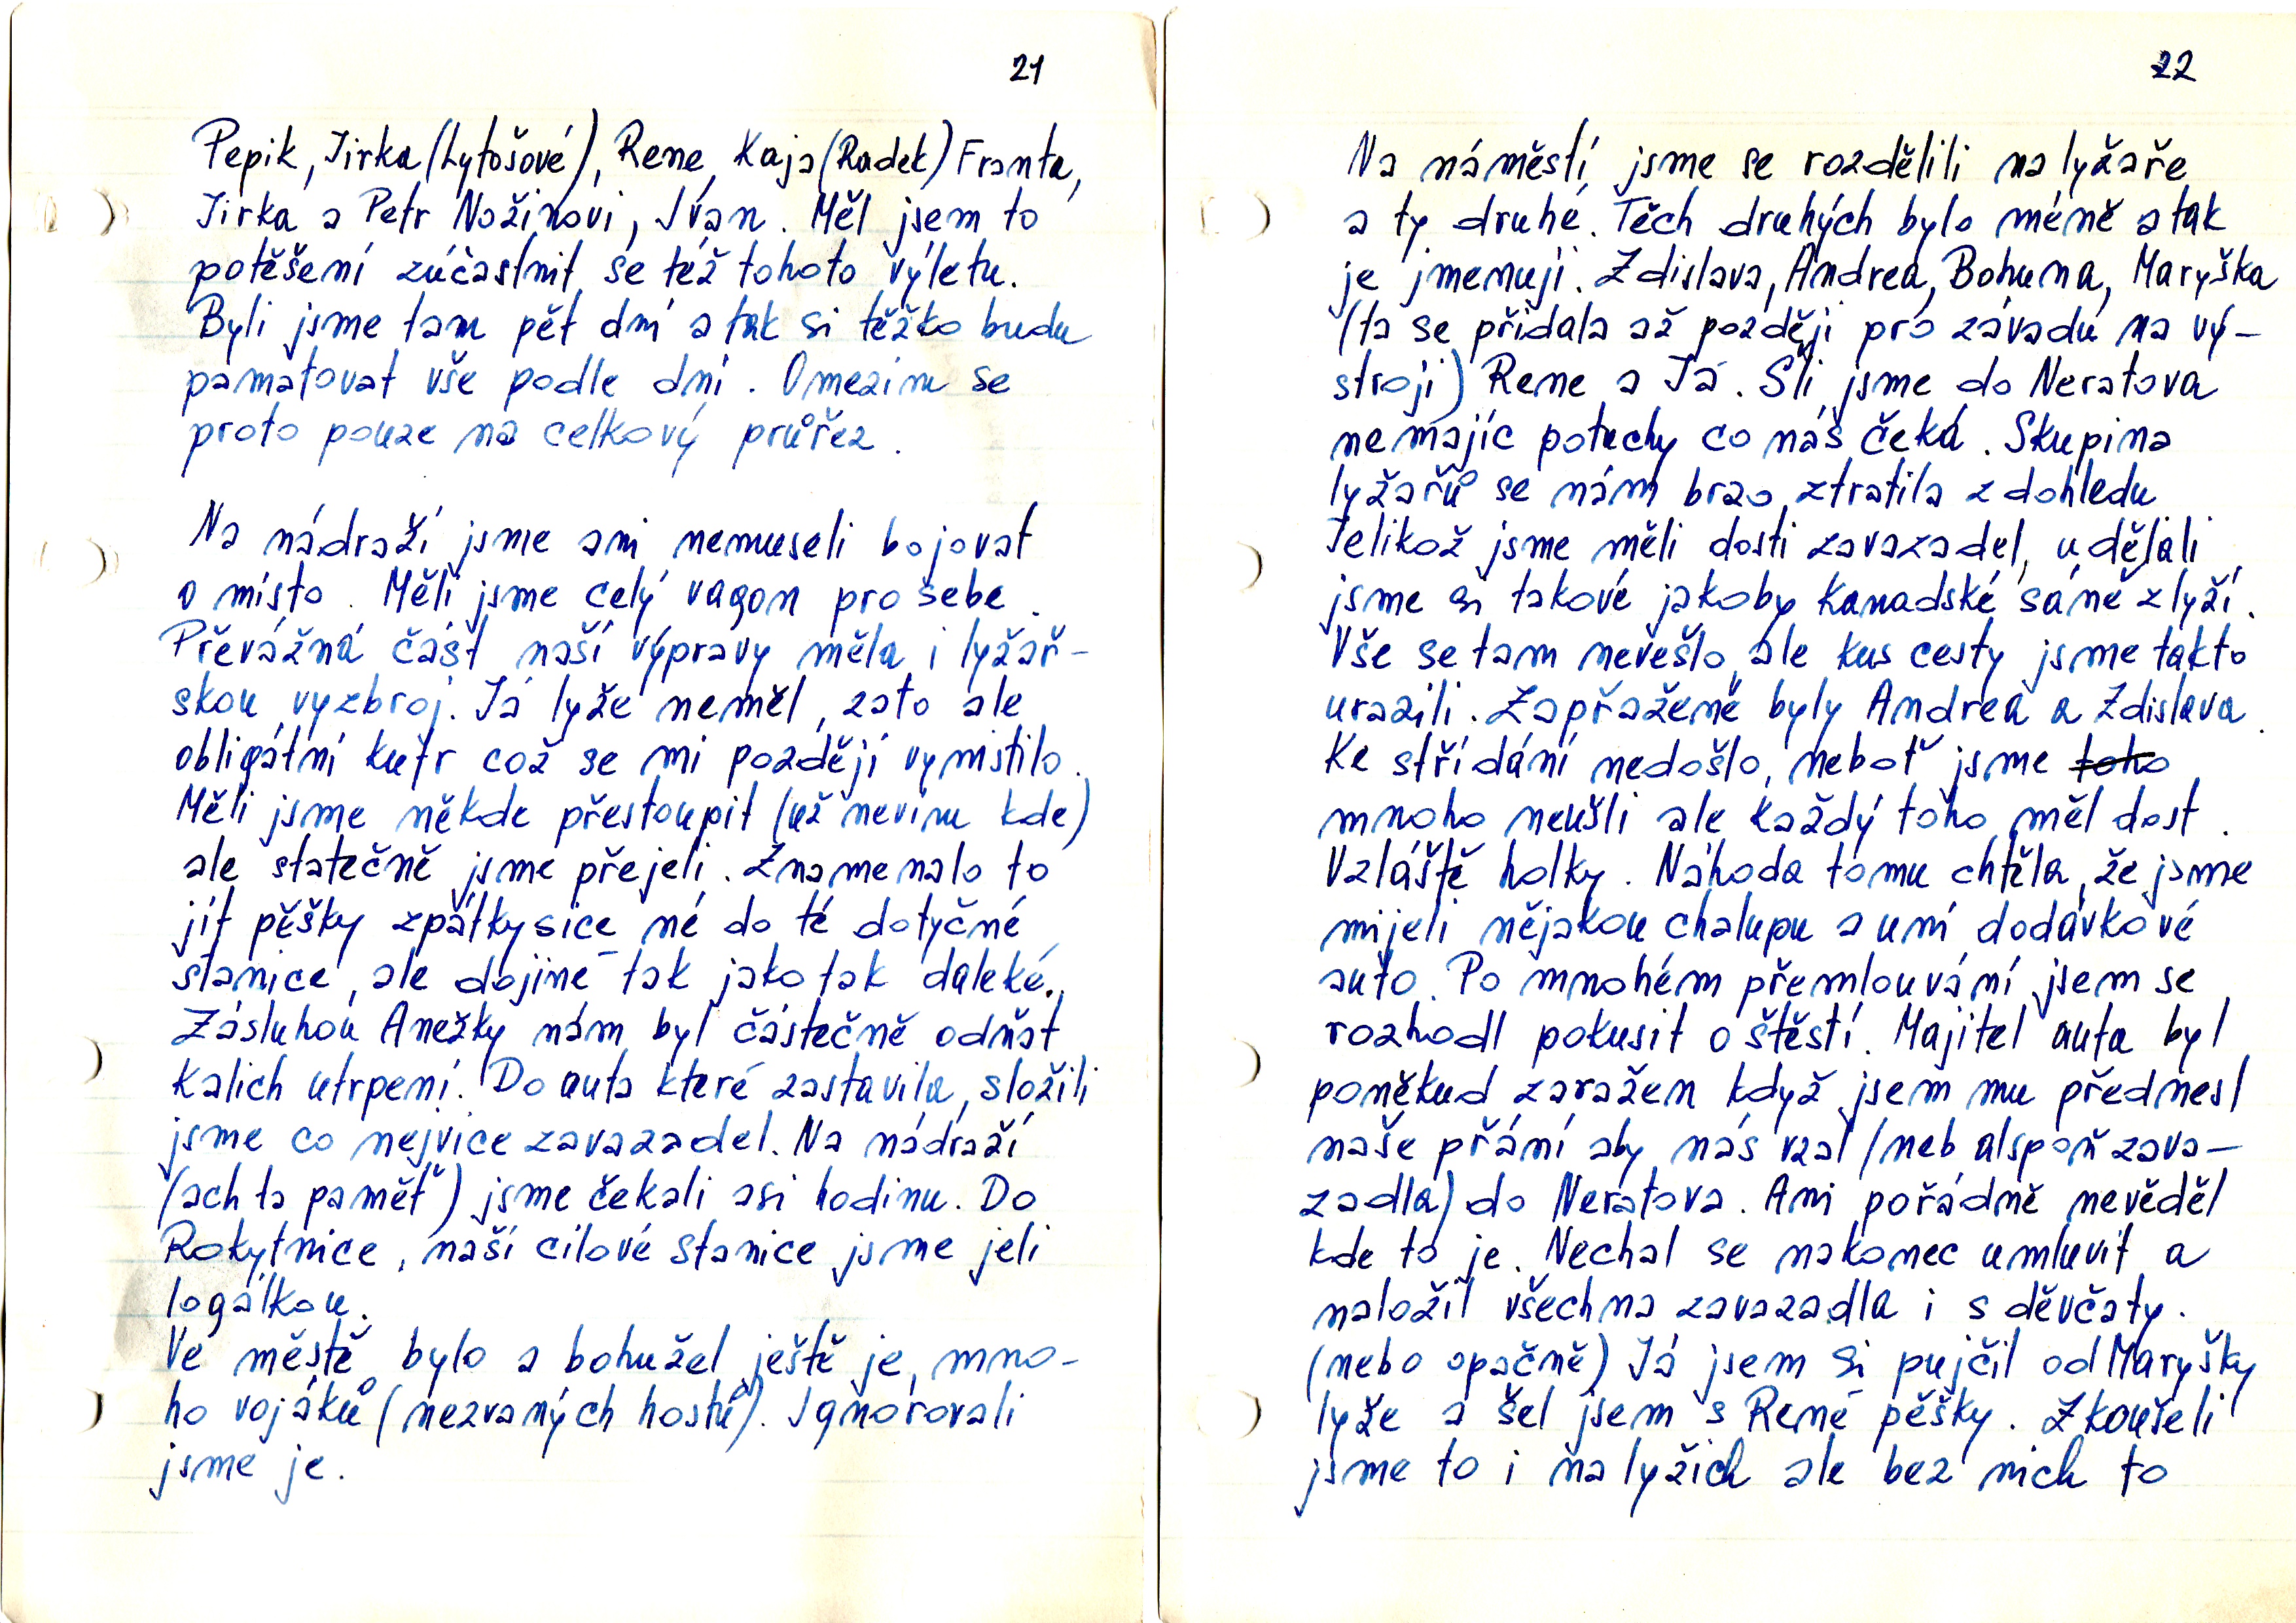 21
Pepik, Jirka (Lytošové), Rene, Kaja (Radek) Franta,
Jirka a Petr Nožinovi, Ivan. Měl jsem to
potěšení zúčastnit se též tohoto výletu.
Byli jsme tam pět dní a tak si těžko budu
pamatovat vše podle dní. Omezím se
proto pouze na celkový průřez.
Na nádraží jsme ani nemuseli bojovat
o místo. Měli jsme celý vagon pro sebe.
Převážná část naší výpravy měla i lyžař-
skou vyzbroj. Já lyže neměl, zato ale
obligátní kufr což se mi později vymstilo.
Měli jsme někde přestoupit (už nevím kde)
ale statečně jsme přejeli. Znamenalo to
jít pěšky zpátky sice né do té dotyčné
stanice, ale do jiné tak jako tak daleké.
Zásluhou Anežky nám byl částečně odňat
kalich utrpení. Do auta které zastavila, složili
jsme co nejvíce zavazadel. Na nádraží
(ach ta paměť) jsme čekali asi hodinu. Do
Rokytnice, naší cílové stanice jsme jeli
logálkou.
Ve městě bylo a bohužel ještě je mno-
ho vojáků (nezvaných hostů). Ignorovali
jsme je.
22
Na náměstí jsme se rozdělili na lyžaře
a ty druhé. Těch druhých bylo méně a tak
je jmenuji. Zdislava, Andrea, Bohuna, Maryška
(ta se přidala až později pro závadu na vý-
stroji) Rene a Já. Šli jsme do Neratova
nemajíc potuchy co nás čeká. Skupina
lyžařů se nám brzo ztratila z dohledu
Jelikož jsme měli dosti zavazadel, udělali
jsme si takové jakoby kanadské sáně z lyží.
Vše se tam nevešlo, ale kus cesty jsme takto
urazili. Zapřažené byly Andrea a Zdislava.
Ke střídání nedošlo, neboť jsme toho
mnoho neušli ale každý toho měl dost.
Vzláště holky. Náhoda tomu chtěla, že jsme
mijeli nějakou chalupu a u ní dodávkové
auto. Po mnohém přemlouvání jsem se
rozhodl pokusit o štěstí. Majitel auta byl
poněkud zaražen když jsem mu přednesl
naše přání aby nás vzal (neb alspoň zava-
zadla) do Neratova. Ani pořádně nevěděl
kde to je. Nechal se nakonec umluvit a
naložil všechna zavazadla i s děvčaty.
(nebo opačně) Já jsem si pujčil od Maryšky
lyže a šel jsem s René pěšky. Zkoušeli
jsme to i na lyžich ale bez nich to